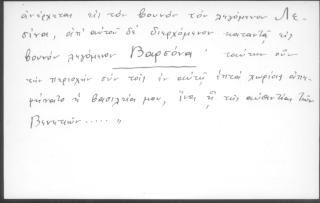 ἀνέρχεται εἰς τὸν βουνὸν τὸν λεγόμενον Λε-
σίνα, ἀπ' αὐτοῦ δὲ διερχόμενον καταντᾷ εἰς
βουνὸν λεγόμενον Βαρσόνα· ταύτην οὖν
τὴν περιοχὴν σὺν τοῖς ἐν αὐτῇ ἑπτὰ χωρίοις ἀπε-
χήσατο ἡ βασιλεία μου, ἵνα ᾖ τῆς αὐθεντίας τῶν
Βενετικῶν ..... "